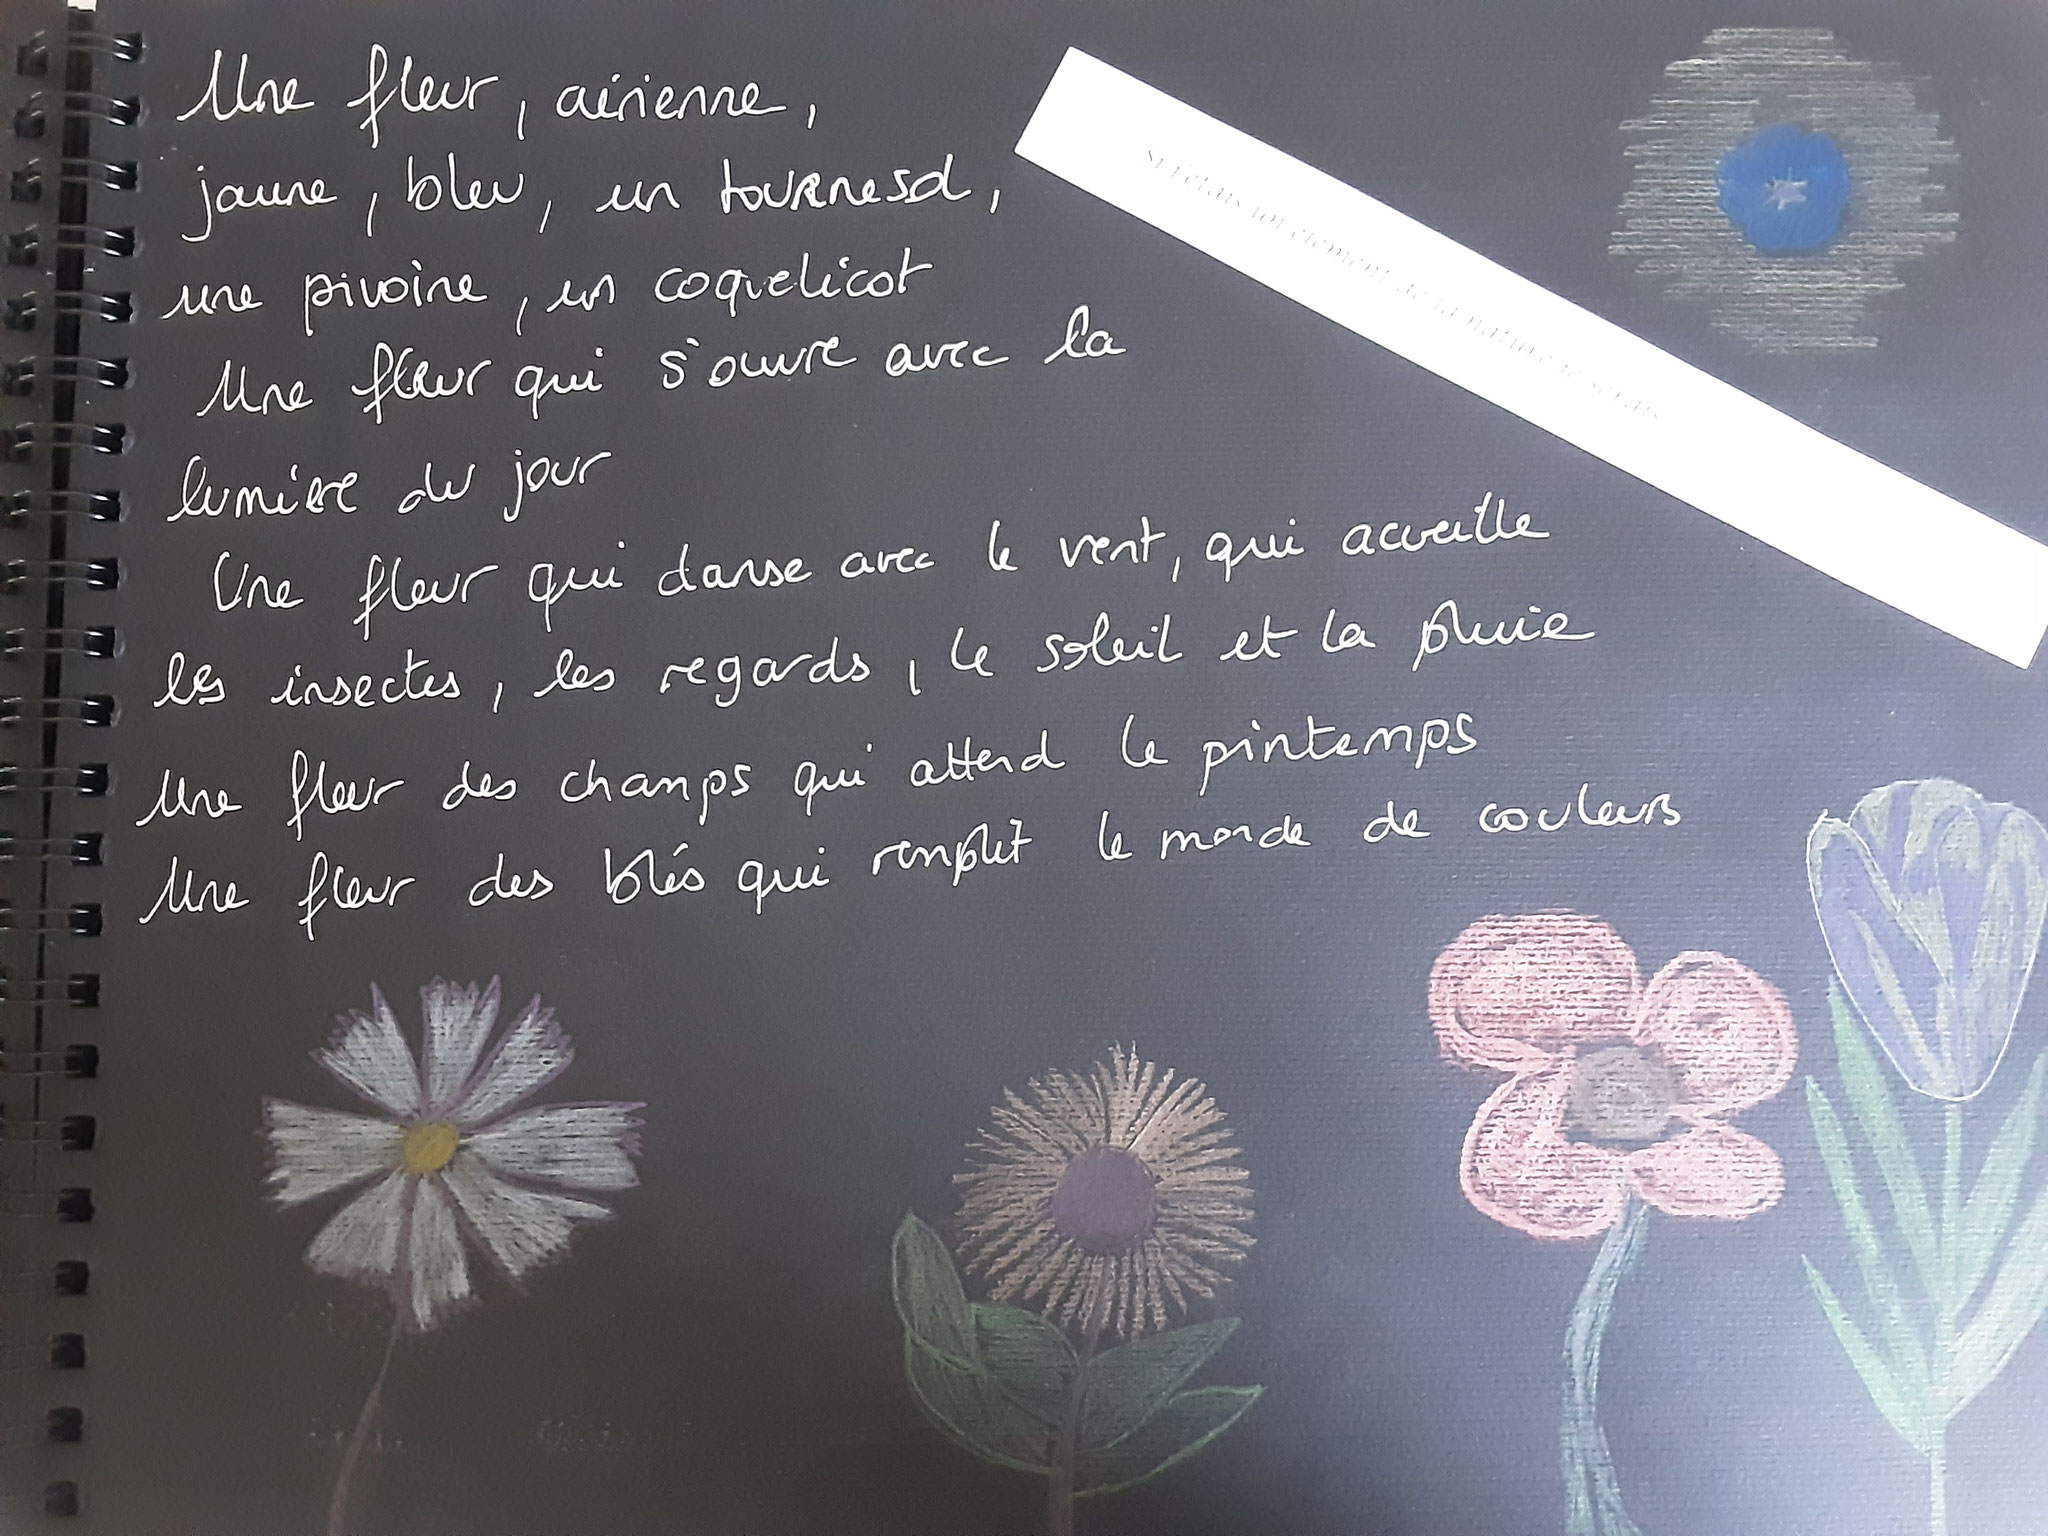 Une fleur, aérienne,
jaune, bleu, un tournesol,
une pivoine, un coquelicot
Une fleur qui s'ouvre avec la
lumière du jour
Une fleur qui danse avec le vent, qui accueille
les insectes, les regards, le soleil et la pluie
Une fleur des champs qui attend le printemps
Une fleur des blés qui remplit le monde de couleurs
Si j'étais un élément de la nature je serais